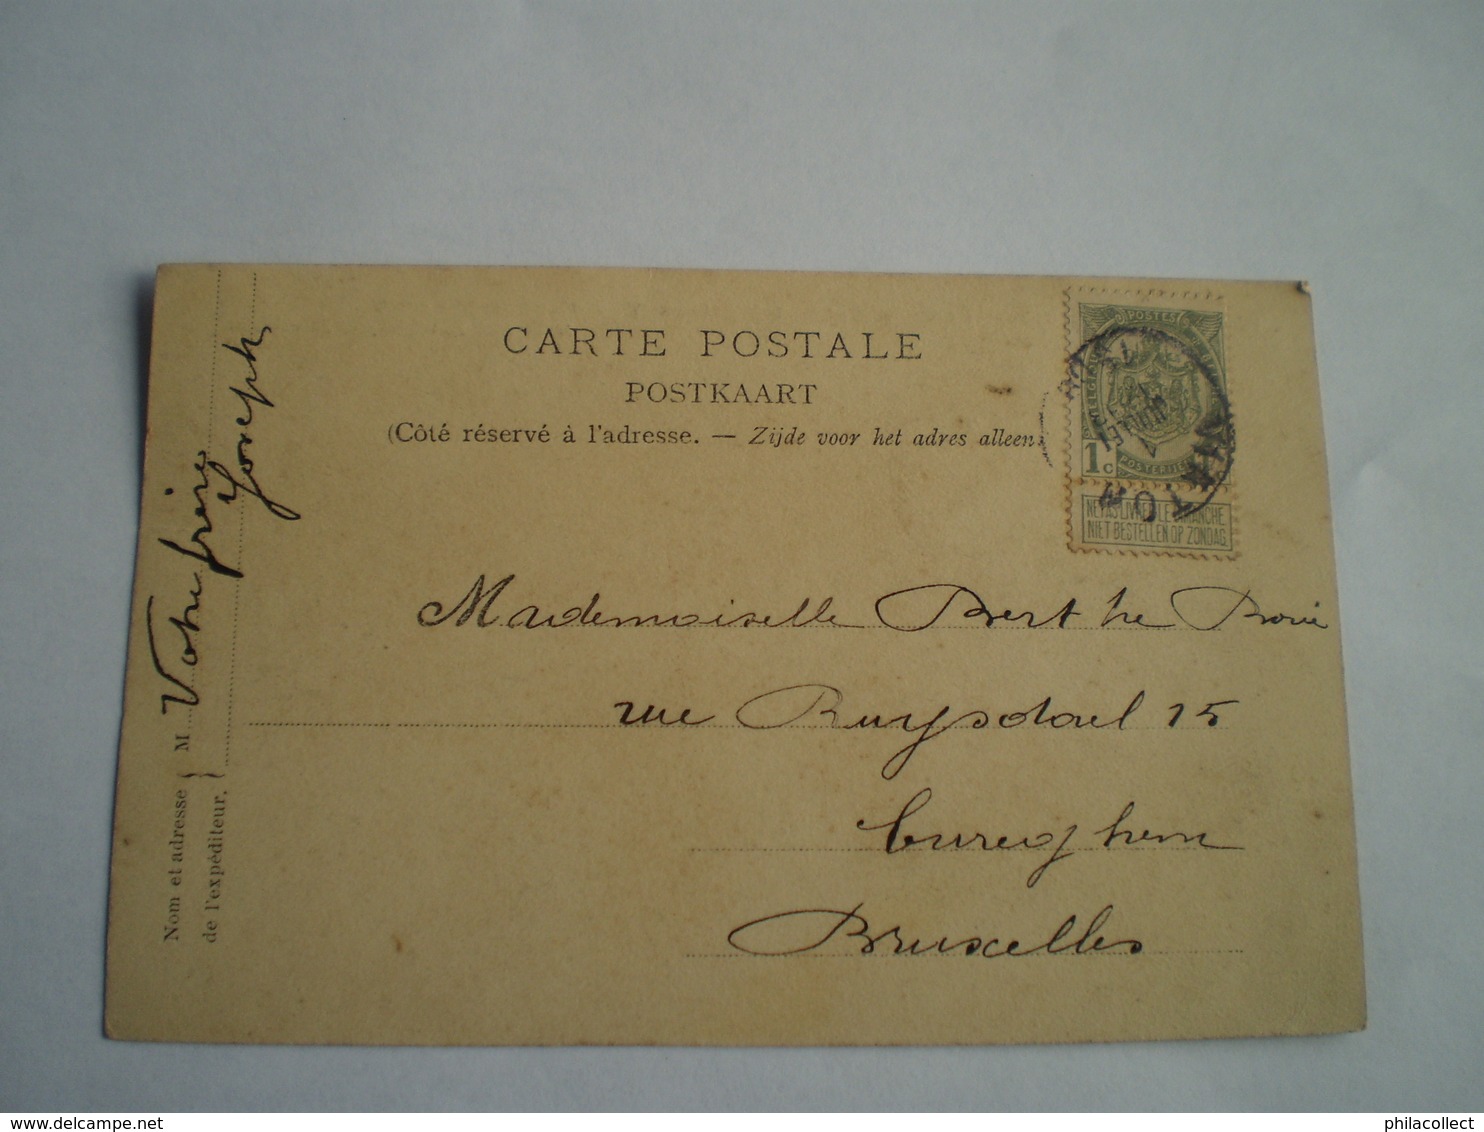 CARTE POSTALE
POSTKAART
(Côté réservé à l'adresse. — Zijde voor het adres alleen
POSTES
BELGIQUE
1c
POSTERIJEN
NE PAS LIVRER LE DIMANCHE
NIET BESTELLEN OP ZONDAG
VIRTON
JUILLET
Mademoiselle Berthe
rue Ruysdael 15
Cureghem
Bruxelles
Nom et adresse
de l'expéditeur.
M
Votre frère
Joseph
delcampe.net
philacollect